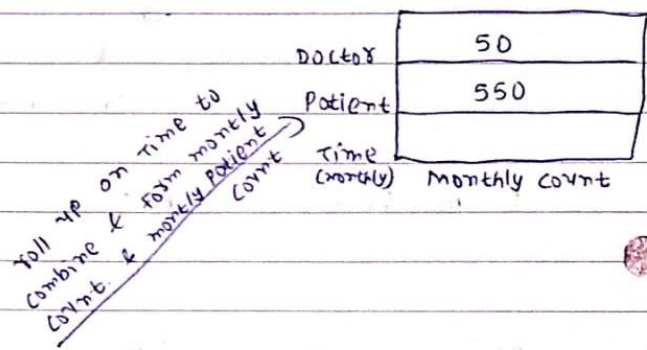 Doctor 50
Patient 550
Time
(monthly) Monthly count
roll up on Time to
combine & form montly
count. & montly patient
count